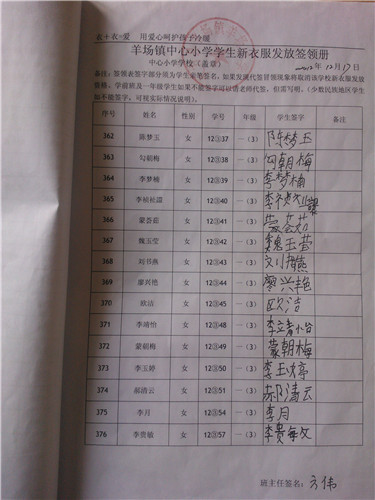 衣+衣=爱 用爱心呵护孩子冷暖
羊场镇中心小学学生新衣服发放签领册
中心小学学校（盖章） 2012年12月17日
备注：签领表签字部分须为学生亲笔签名，如果发现代签冒领现象将取消该学校新衣服发放
资格，学前班及一年级学生如果不能签字可以请老师代签，但需写明。（少数民族地区学生
如不能签字，可视实际情况说明）。
序号 姓名 性别 学号 年级 学生签字 备注
362 陈梦玉 女 12③37 一（3） 陈梦玉
363 勾朝梅 女 12③38 一（3） 勾朝梅
364 李梦楠 女 12③39 一（3） 李梦楠
365 李祯杜 女 12③40 一（3） 李
366 蒙荟茹 女 12③41 一（3） 蒙荟茹
367 魏玉莹 女 12③42 一（3） 魏玉莹
368 刘书燕 女 12③43 一（3） 刘书燕
369 廖兴艳 女 12③44 一（3） 廖兴艳
370 欧洁 女 12③45 一（3） 欧洁
371 李靖怡 女 12③48 一（3） 李靖怡
372 蒙朝梅 女 12③49 一（3） 蒙朝梅
373 李玉婷 女 12③50 一（3） 李玉婷
374 郝清云 女 12③51 一（3） 郝清云
375 李月 女 12③54 一（3） 李月
376 李贵敏 女 12③57 一（3） 李贵敏
班主任签名：方伟